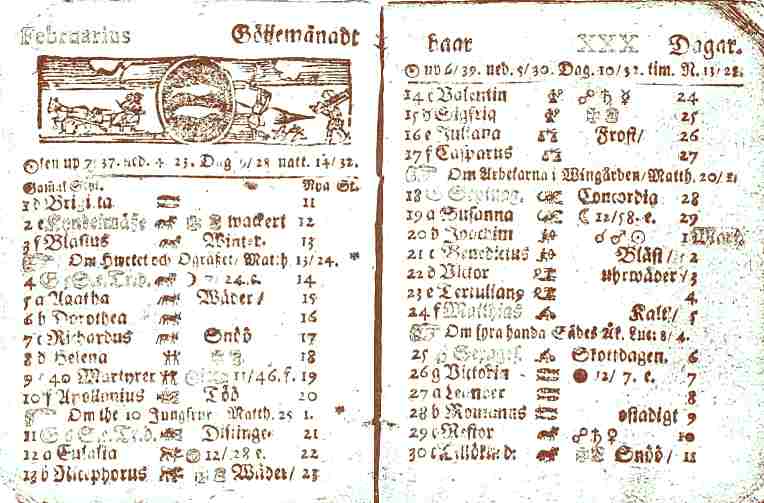 Februarius Göijemånadt
Solen up 7/37. ned. 4 23. Dag 9/28 natt. 14/32.
Gamal Styl. Nya St.
1 d Brigitta 11
2 e Kyndelmässe wackert 12
3 f Blasius Winter. 13
Om Hwetet och Ogräset/ Matth. 13/24.
4 24. e. 14
5 a Agatha Wäder/ 15
6 b Dorothea 16
7 c Richardus Snöö 17
8 d Helena 18
9 e 40 Martyrer 11/46. f. 19
10 f Apollonius Töö 20
Om the 10 Jungfrur Matth. 25 1.
11 Distinge. 21
12 a Eulalia 12/28 e. 22
13 b Nicephorus Wäder/ 23
haar XXX Dagar.
☉ up 6/39. ned. 5/30. Dag. 10/32. tim. N. 13/28.
14 c Valentin ☍ ♄ ☿ 24
15 d Sigfrid 25
16 e Juliana Frost/ 26
17 f Casparus 27
Om Arbetarna i Wingården/Matth. 20/1.
18 Concordia 28
19 a Susanna ☾ 12/58. e. 29
20 b Joachim ☌ ♂ ☉ 1 Mart.
21 c Benedictus Bläst/ 2
22 d Victor uhrwäder/ 3
23 e Tertulianus 4
24 f Matthias Kalt/ 5
Om fyrahanda Sädes Åk. Luc: 8/4.
25 Skottdagen. 6
26 g Victorin ● 12/ 7. e. 7
27 a Leander 8
28 b Romanus ostadigt 9
29 c Nestor ☍ ♄ ♀ 10
30 Snöö/ 11